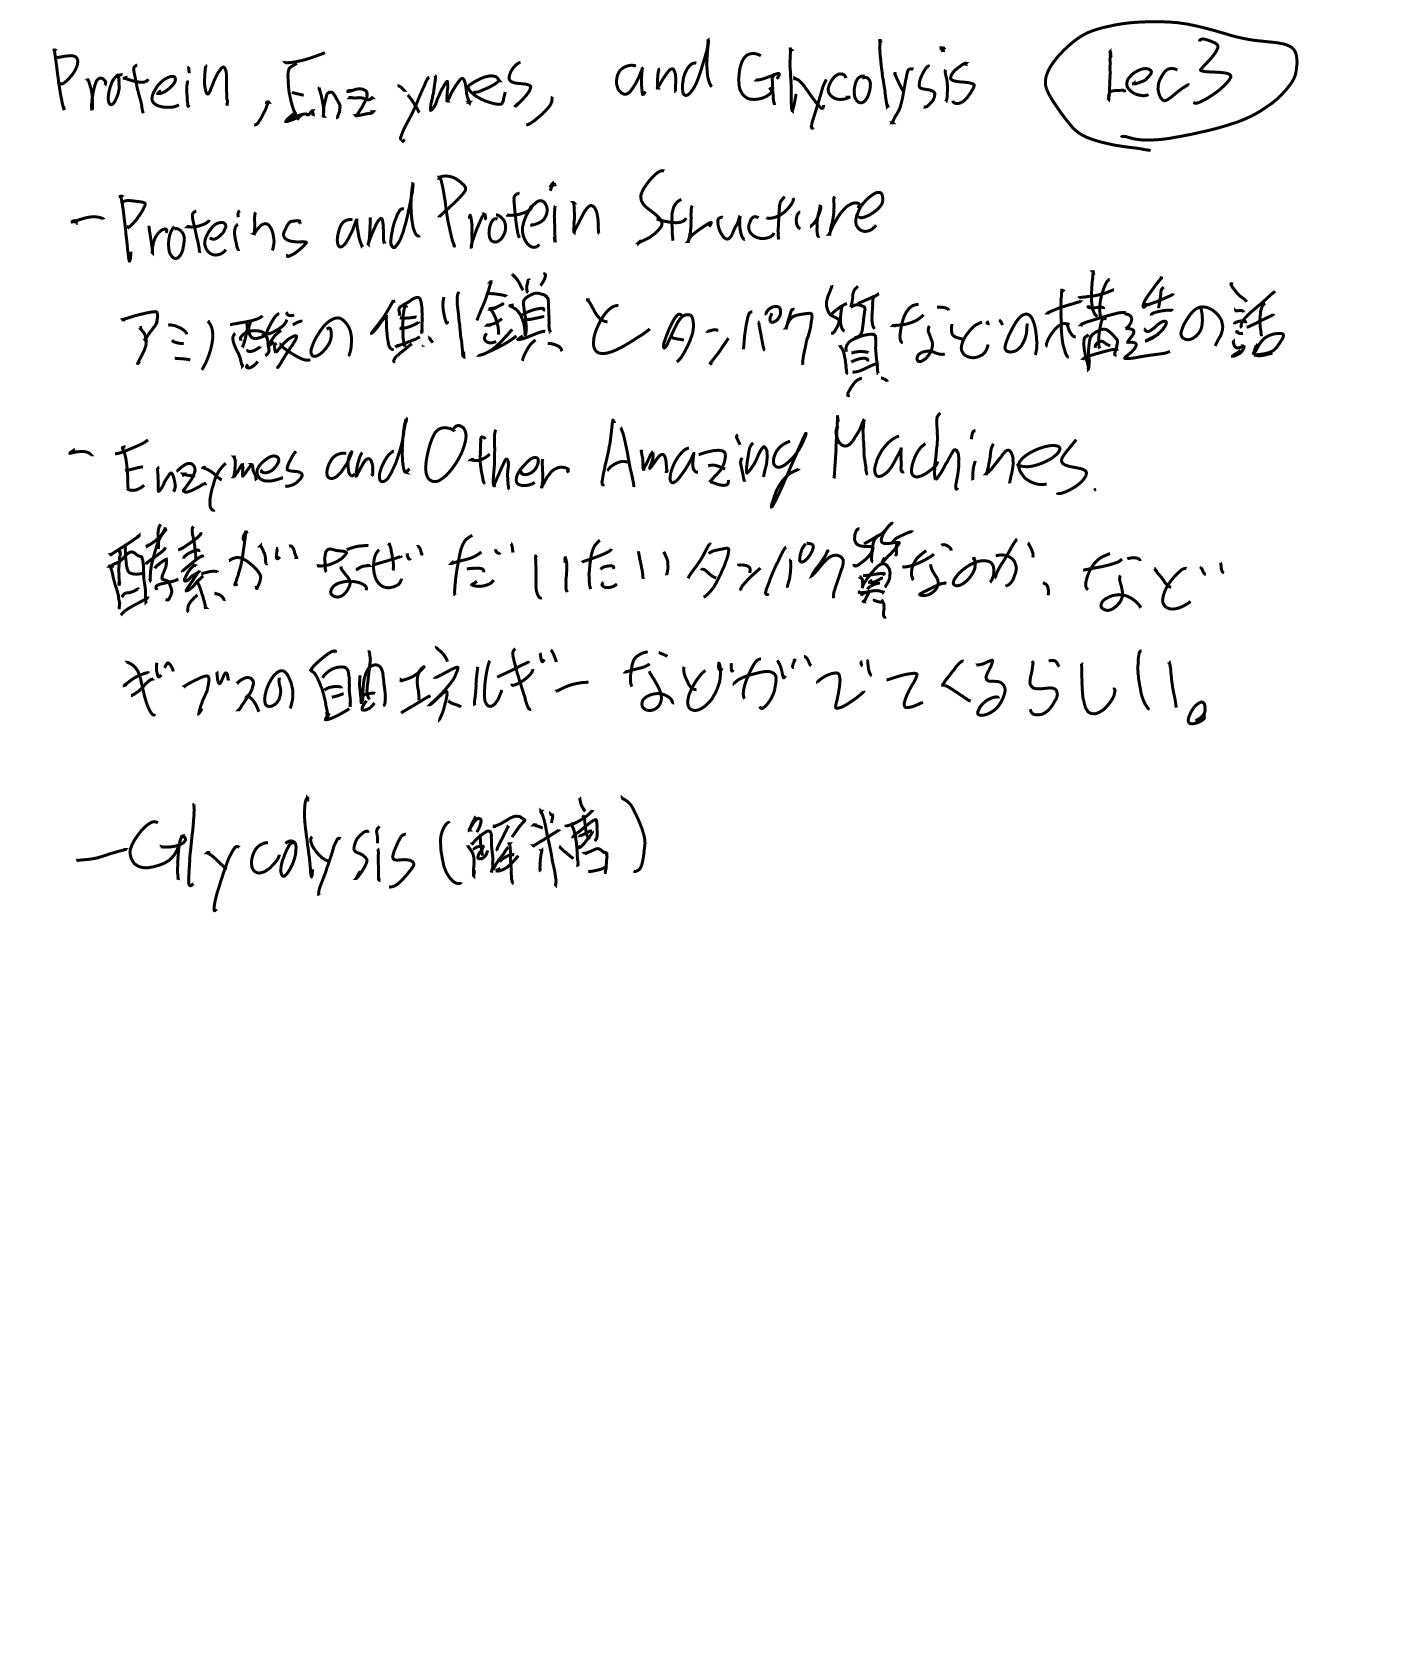 Protein, Enzymes, and Glycolysis Lec3
- Proteins and Protein Structure
アミノ酸の側鎖とタンパク質などの構造の話
- Enzymes and Other Amazing Machines.
酵素がなぜだいたいタンパク質なのか、など
ギブスの自由エネルギーなどがでてくるらしい。
- Glycolysis (解糖)